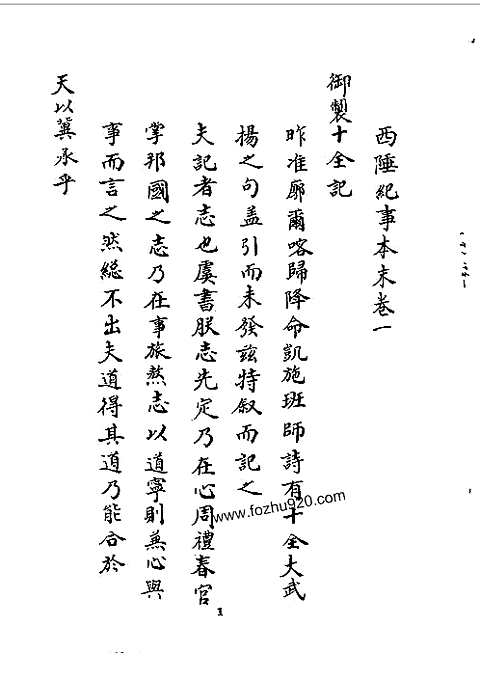 西陲紀事本末卷一
御製十全記
昨准廓爾喀歸降命凱施班師詩有十全大武
揚之句蓋引而未發茲特敘而記之
夫記者志也虞書朕志先定乃在心周禮春官
掌邦國之志乃在事旅獒志以道寧則兼心與
事而言之然總不出夫道得其道乃能合於
天以冀承乎
www.fozhu920.com
1